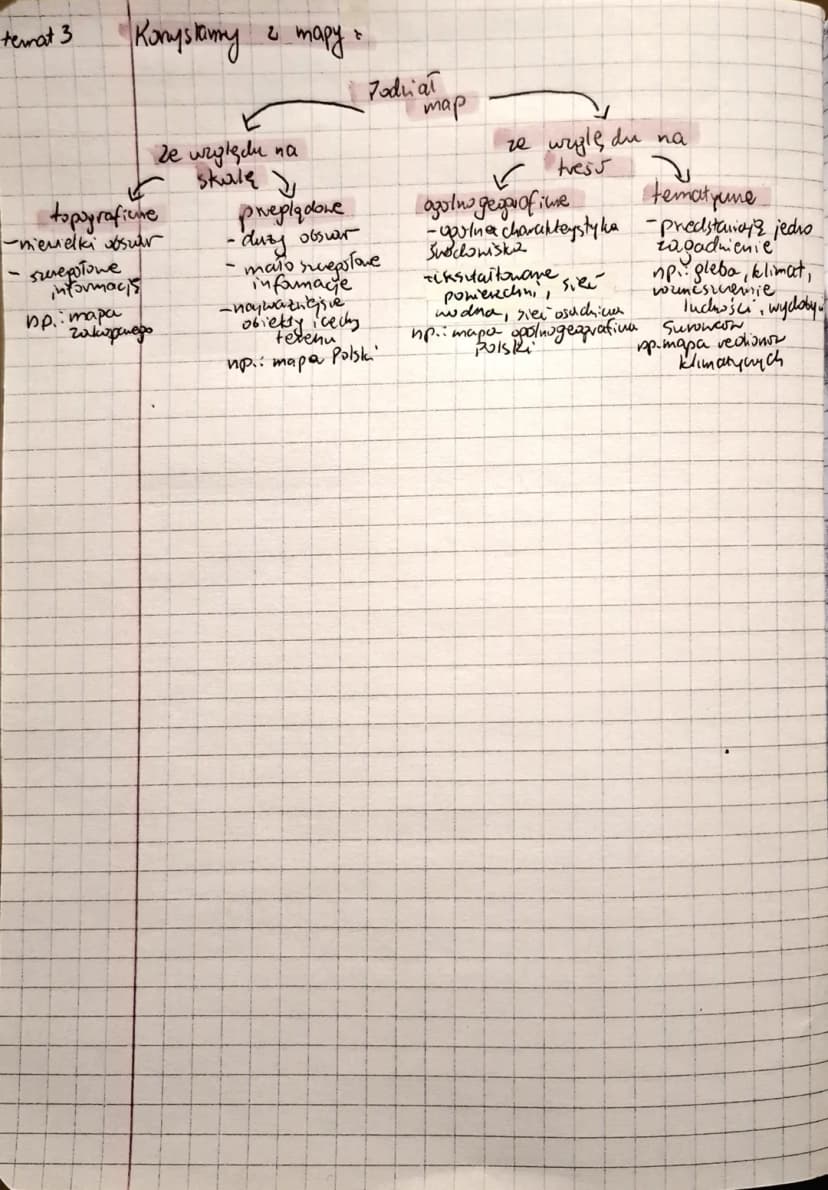 temat 3 Korzystamy z mapy:
Podział
map
Ze względu na
skalę
ze względu na
treść
topograficzne
- niewielki obszar
- szczegółowe
informacje
np.: mapa
zakopanego
przeglądowe
- duży obszar
- mało szczegółowe
informacje
- najważniejsze
obiekty i cechy
terenu
np.: mapa Polski
ogólnogeograficzne
- ogólna charakterystyka
środowiska
- ukształtowanie
powierzchni, sieć
wodna, sieć osadnicza
np.: mapa ogólnogeograficzna
Polski
tematyczne
- przedstawiają jedno
zagadnienie
np.: gleba, klimat,
rozmieszczenie
ludności, wydobycie
surowców
np. mapa regionów
klimatycznych